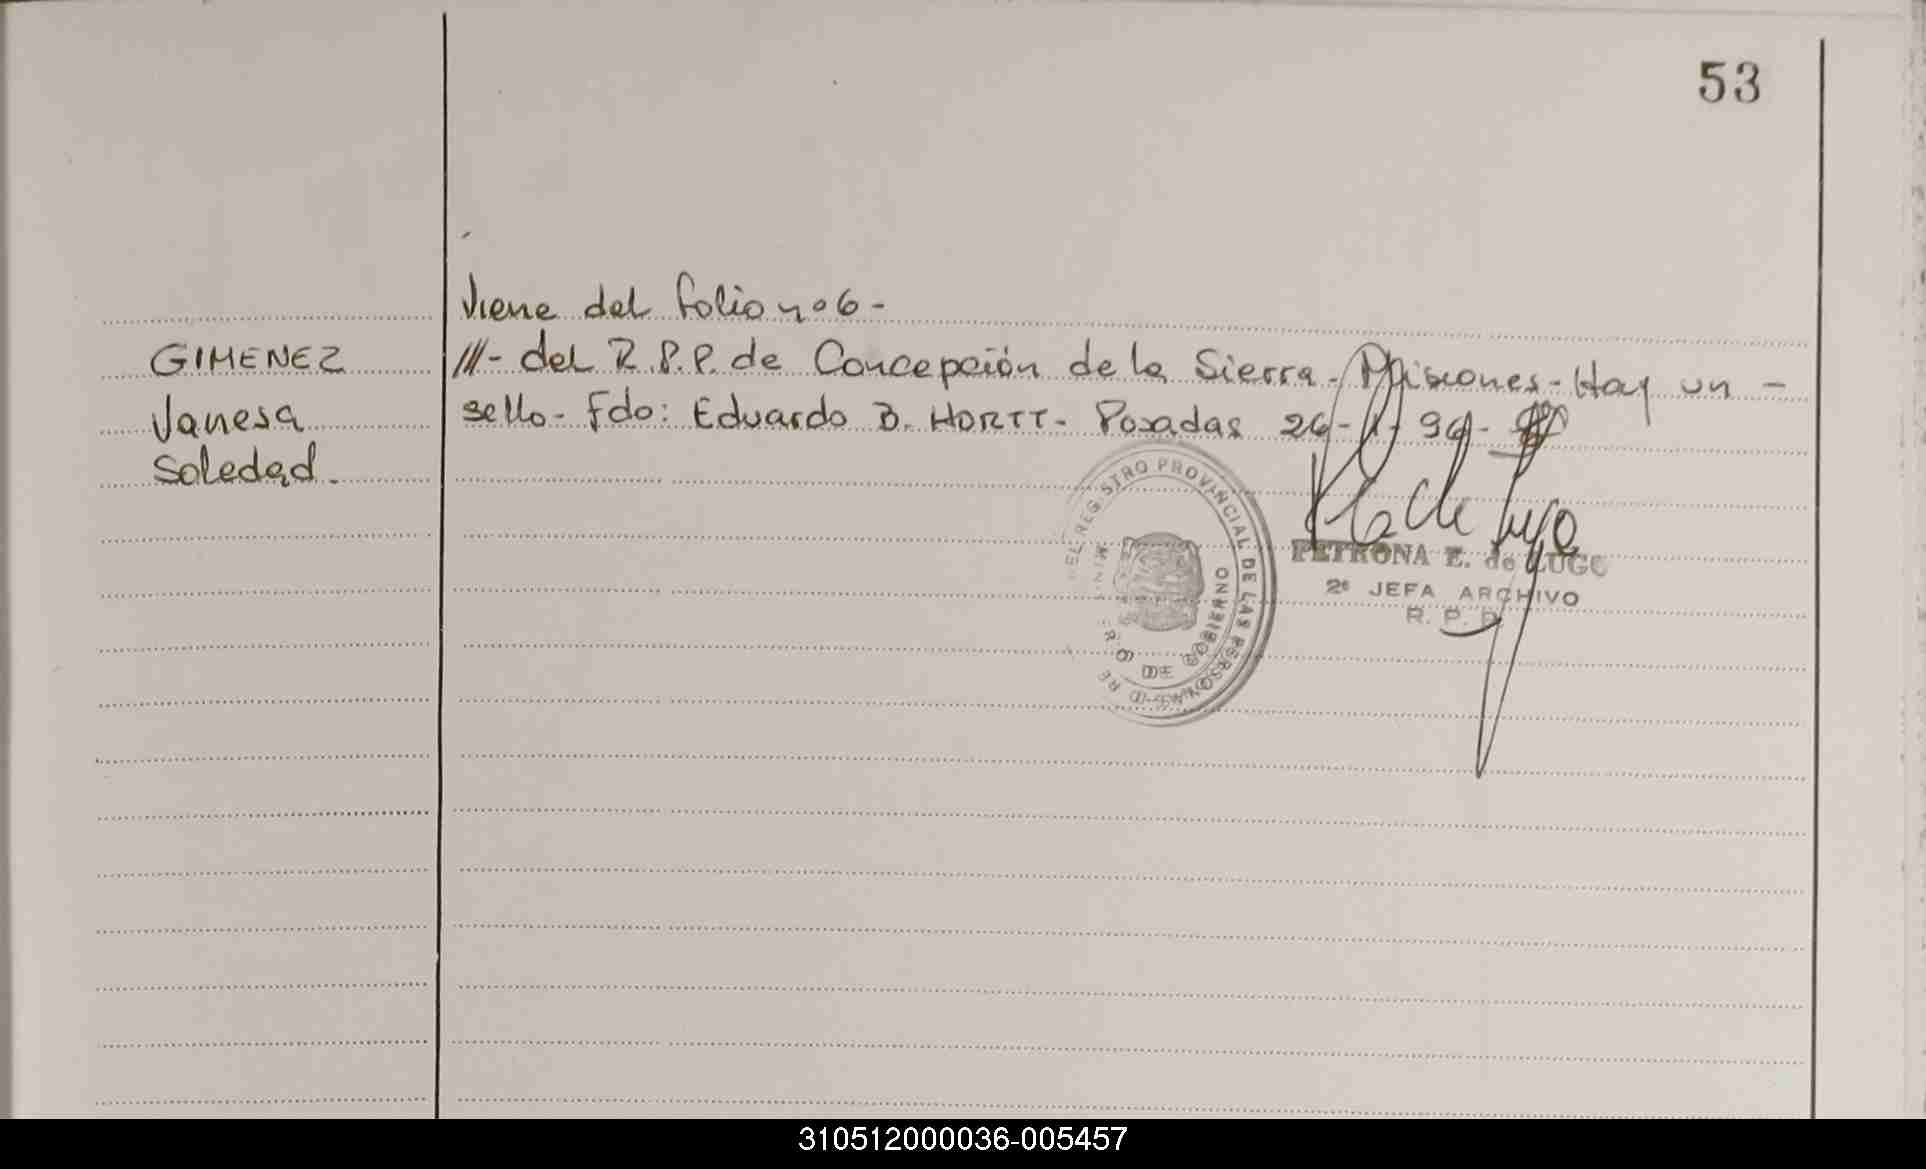 53
Viene del folio nº 6 -
GIMENEZ
Vanesa
Soledad.
///- del R.P.P. de Concepción de la Sierra - Misiones - Hay un -
sello - Fdo: Eduardo B. HORTT - Posadas
REGISTRO PROVINCIAL DE LAS PERSONAS
DE GOBIERNO
PETRONA E. de LUGO
2ª JEFA ARCHIVO
R. P. P.
310512000036-005457